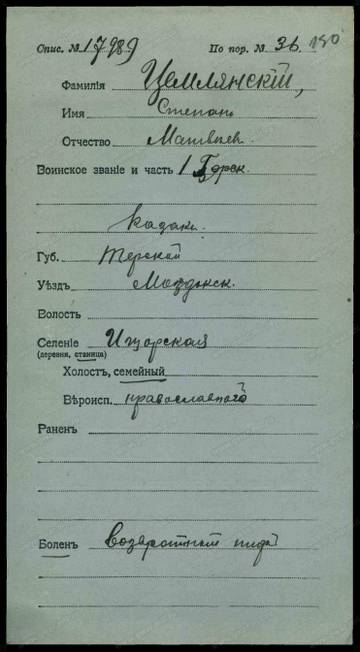 Спис. № 17989 По пор. № 36 150
Фамилія Цемлянскій,
Имя Степанъ
Отчество Матвѣев.
Воинское званіе и часть 1
Казакъ.
Губ. Терской
Уѣздъ Моздокск.
Волость
Селеніе Ищорская
(деревня, станица)
Холостъ, семейный
Вѣроисп. православного
Раненъ
Боленъ возвратный тифъ